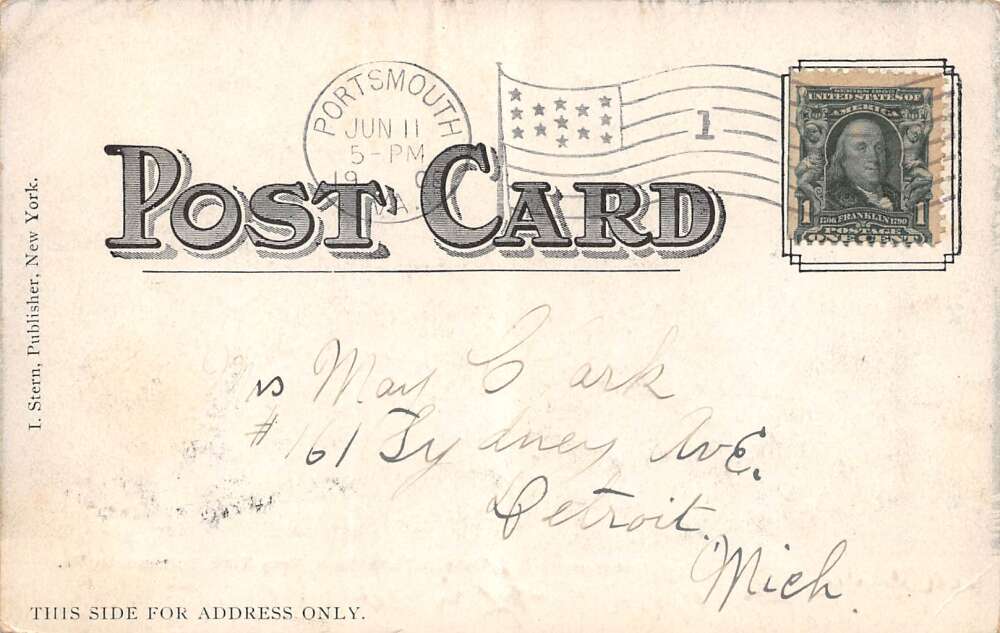 PORTSMOUTH
JUN 11
5-PM
VA.
1
SERIES 1902
UNITED STATES OF
AMERICA
1 1706 FRANKLIN 1790 1
POSTAGE
POST CARD
I. Stern, Publisher, New York.
May Clark
#161 Sydney Ave.
Detroit
Mich
THIS SIDE FOR ADDRESS ONLY.